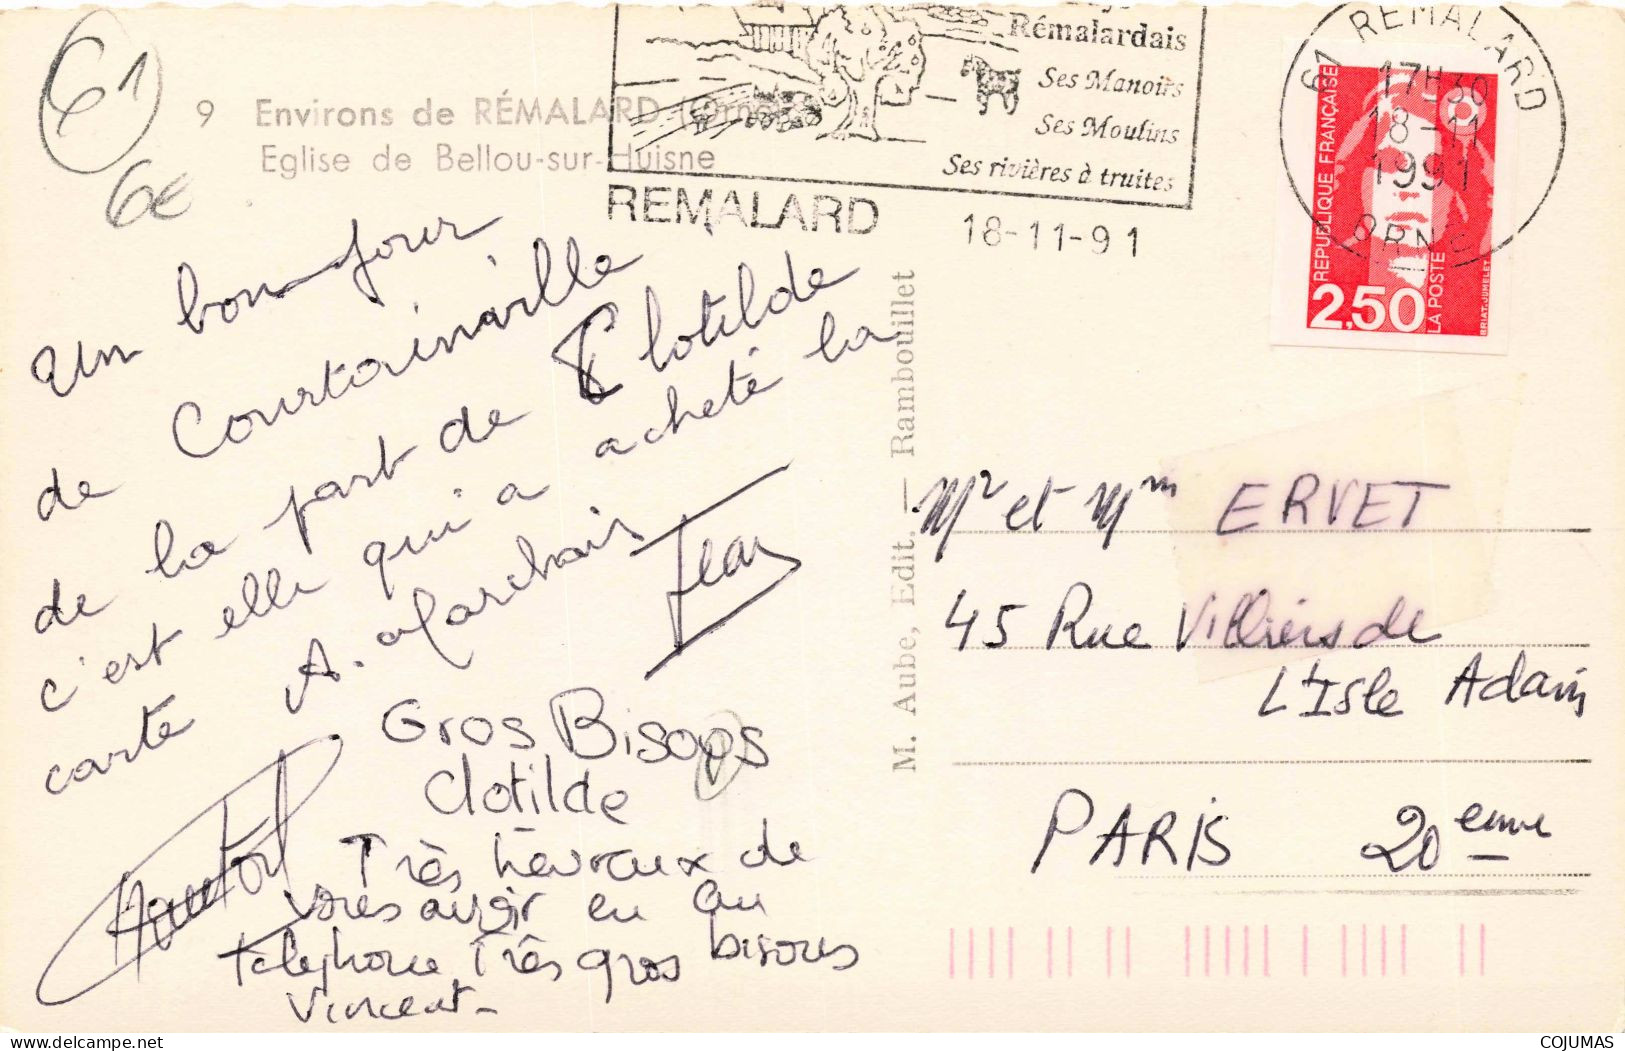 61
6€
9 Environs de RÉMALARD (Orne)
Eglise de Bellou-sur-Huisne
Rémalardais
Ses Manoirs
Ses Moulins
Ses rivières à truites
REMALARD
18-11-91
61 REMALARD
17H30
18-11
1991
ORNE
REPUBLIQUE FRANÇAISE
2,50
LA POSTE
BRIAT.JUMELET
Un bonjour
de Courtoinville
de la part de Clotilde
c'est elle qui a acheté la
carte
Jean
Gros Bisous
Clotilde
Très heureux de
vous avoir eu au
téléphone Très gros bisous
Vincent-
M. Aube, Edit. — Rambouillet
Mr et Mm ERVET
45 Rue Villiers de
L'Isle Adam
PARIS 20 eme
COJUMAS